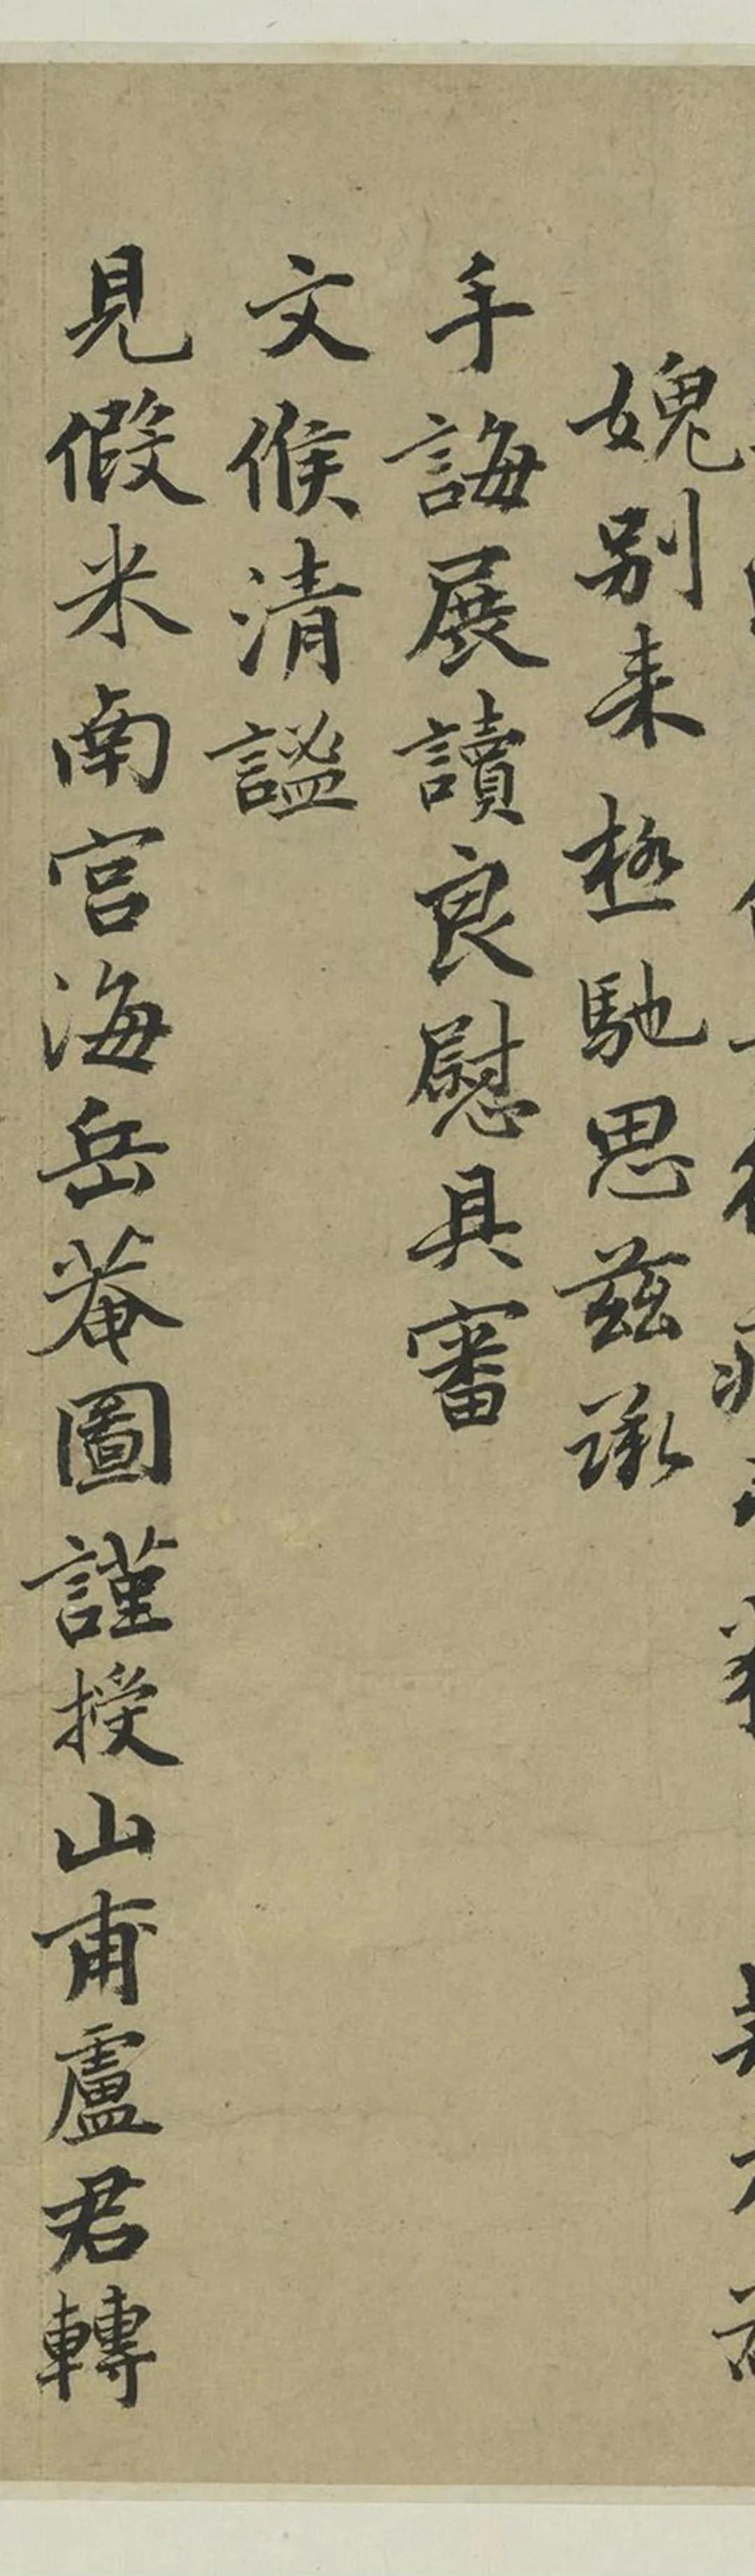 媿别来極馳思兹承
手誨展讀良慰具審
文候清謐
見假米南宫海岳菴圖謹授山甫盧君轉